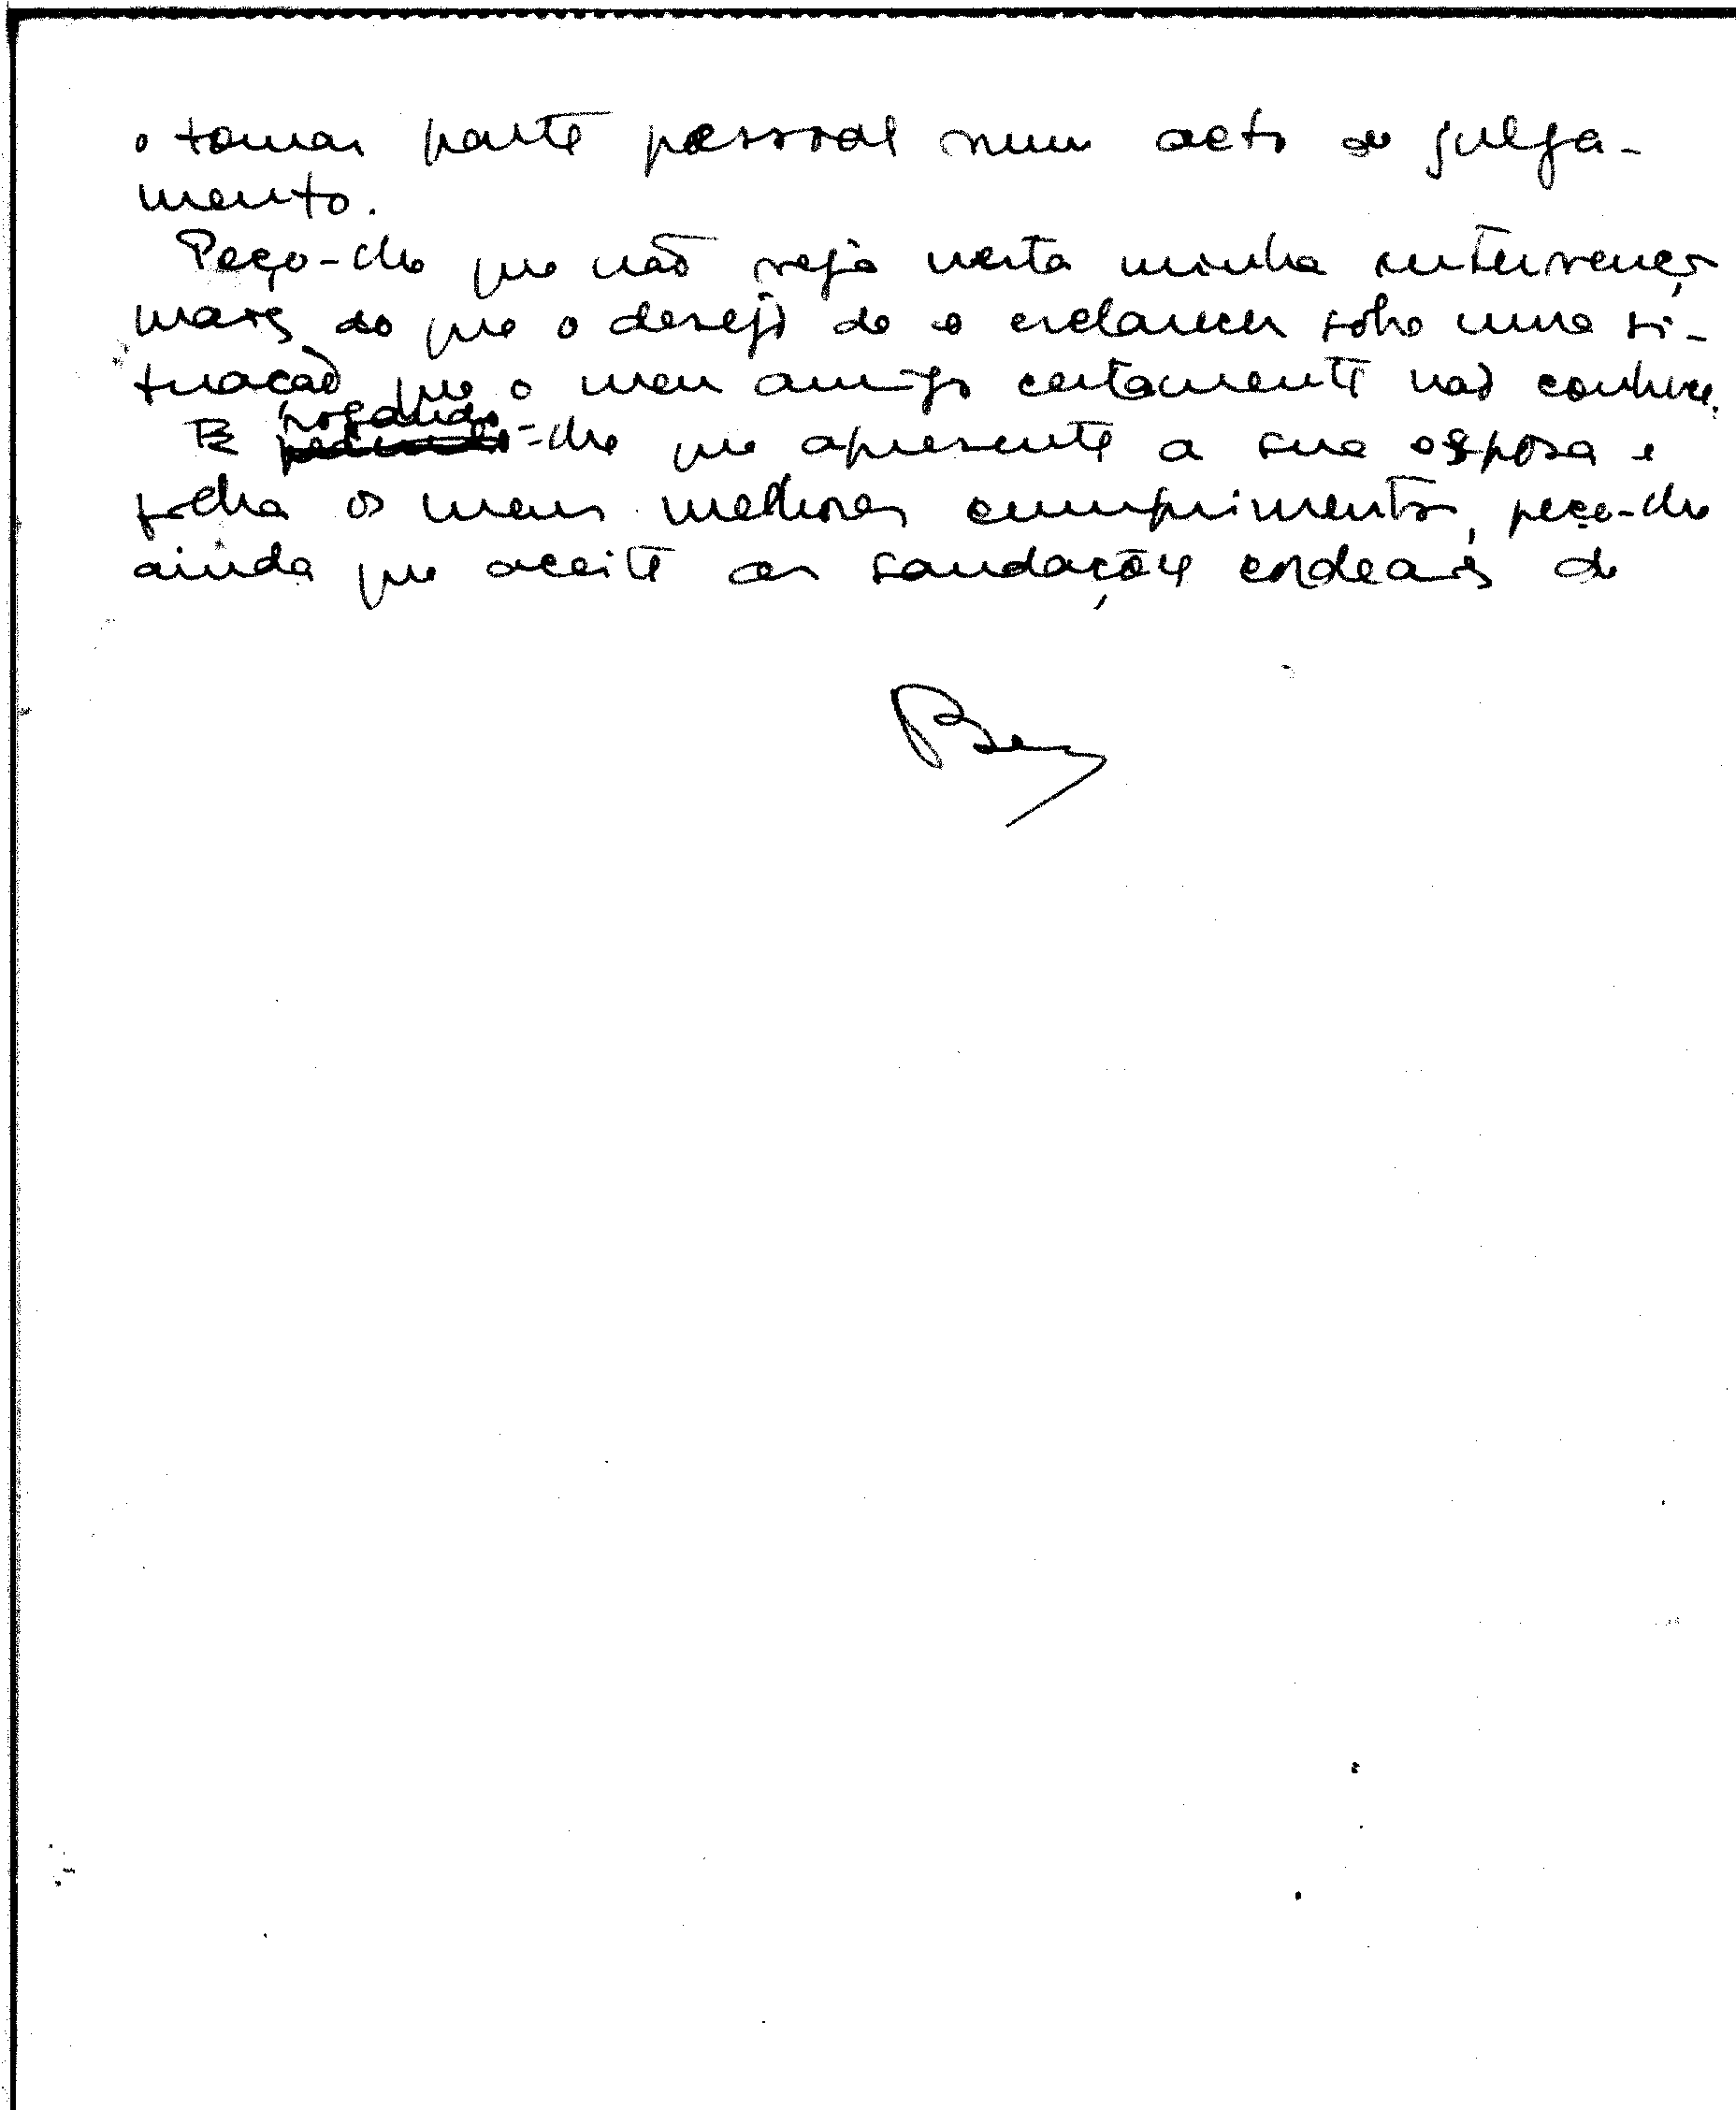 o tomar parte pessoal num acto de julga-
mento.
Peço-lhe que não veja nesta minha intervenção
mais do que o desejo de o esclarecer sobre uma si-
tuação que o meu amigo certamente não conhece.
E rogando-lhe que apresente a sua esposa e
filha os meus melhores cumprimentos, peço-lhe
ainda que aceite as saudações cordeais do